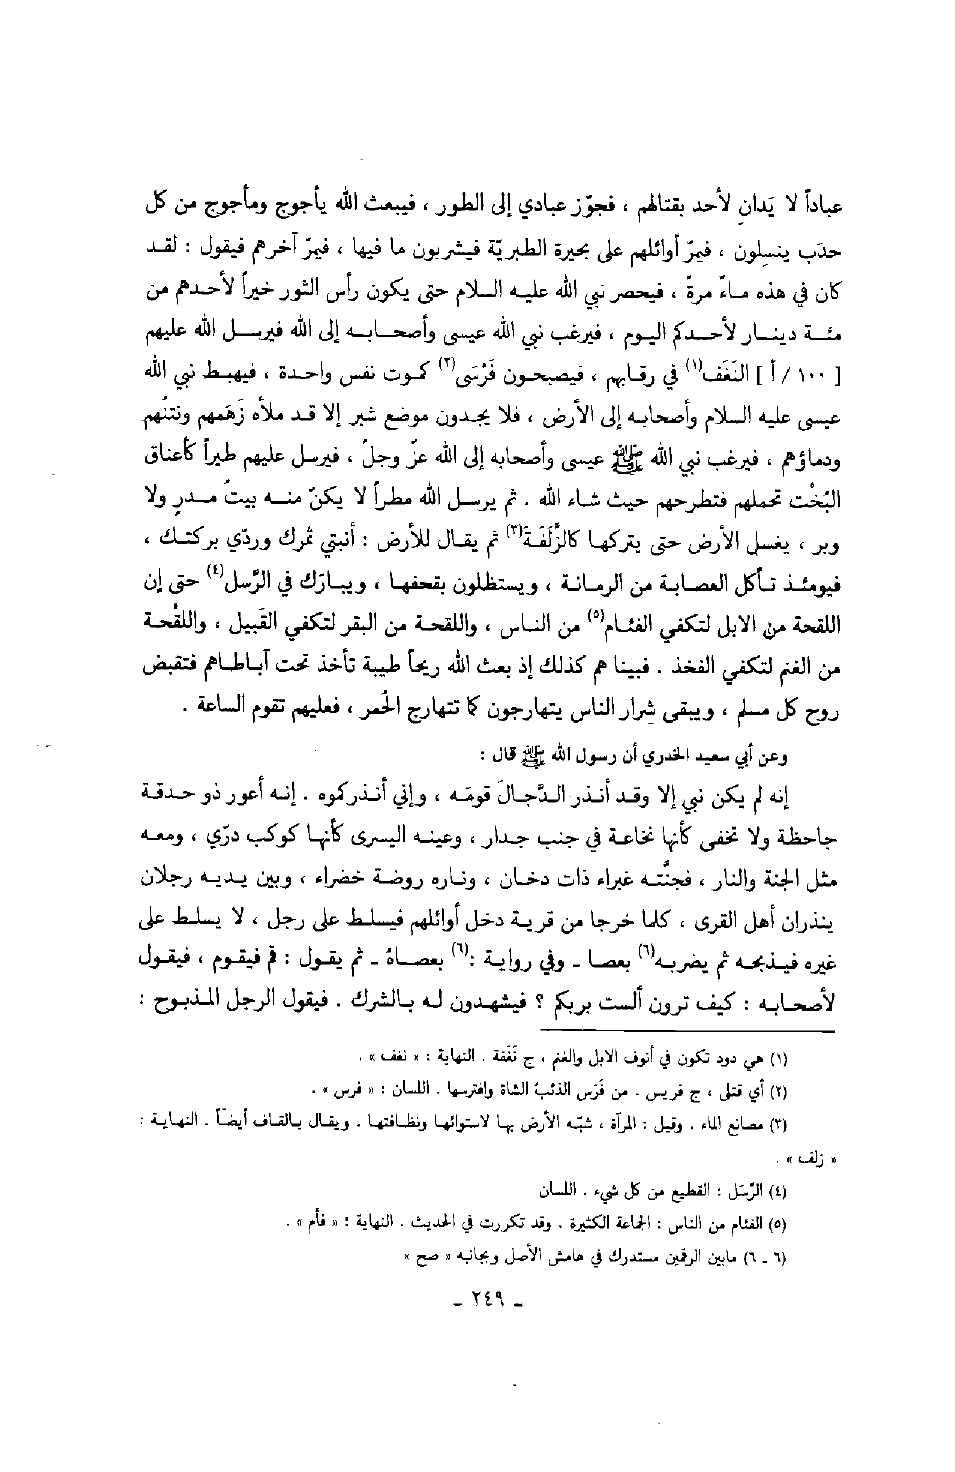 عباداً لا يَدانِ لأحد بقتالهم ، فجوّز عبادي إلى الطور ، فيبعث الله يأجوج ومأجوج من كل
حدَب ينسِلون ، فيمرّ أوائلهم على بحيرة الطبريّة فيشربون ما فيها ، فيمرّ آخرهم فيقول : لقد
كان في هذه ماءٌ مرةً ، فيحصر نبي الله عليه السلام حتى يكون رأس الثور خيراً لأحدهم من
مئة دينار لأحدكم اليوم ، فيرغب نبي الله عيسى وأصحابه إلى الله فيرسل الله عليهم
[ ١٠٠ / أ ] النَغَف(١) في رقابهم ، فيصبحون فَرْسَى(٢) كموت نفس واحدة ، فيهبط نبي الله
عيسى عليه السلام وأصحابه إلى الأرض ، فلا يجدون موضع شبر إلا قد ملأه زَهَمهم ونتْنُهم
ودماؤهم ، فيرغب نبي الله ﷺ عيسى وأصحابه إلى الله عزّ وجلّ ، فيرسل عليهم طيراً كأعناق
البُخْت تحملهم فتطرحهم حيث شاء الله . ثم يرسل الله مطراً لا يكنّ منه بيتُ مدرٍ ولا
وبر ، يغسل الأرض حتى يتركها كالزَّلَفَة(٣) ثم يقال للأرض : أنبتي ثمرك وردّي بركتك ،
فيومئذ تأكل العصابة من الرمانة ، ويستظلون بقحفها ، ويبارَك في الرَّسل(٤) حتى إن
اللقحة من الابل لتكفي الفئام(٥) من الناس ، واللقحة من البقر لتكفي القَبيل ، واللقْحة
من الغنم لتكفي الفخذ . فبينا هم كذلك إذ بعث الله ريحاً طيبة تأخذ تحت آباطهم فتقبض
روح كل مسلم ، ويبقى شرار الناس يتهارجون كما تتهارج الحُمر ، فعليهم تقوم الساعة .
وعن أبي سعيد الخدري أن رسول الله ﷺ قال :
إنه لم يكن نبي إلا وقد أنذر الدَّجالَ قومَه ، وإني أنذركوه . إنه أعور ذو حدقة
جاحظة ولا تخفى كأنها نخاعة في جنب جدار ، وعينه اليسرى كأنها كوكب درّي ، ومعه
مثل الجنة والنار ، فجنَّته غبراء ذات دخان ، وناره روضة خضراء ، وبين يديه رجلان
ينذران أهل القرى ، كلما خرجا من قرية دخل أوائلهم فيسلط على رجل ، لا يسلط على
غيره فيذبحه ثم يضربه(٦) بعصا ـ وفي رواية :(٦) بعصاهُ ـ ثم يقول : قم فيقوم ، فيقول
لأصحابه : كيف ترون ألست بربكم ؟ فيشهدون له بالشرك . فيقول الرجل المذبوح :
(١) هي دود تكون في أنوف الابل والغنم ، ج نَغَفة . النهاية : « نغف » .
(٢) أي قتلى ، ج فريس . من فَرَس الذئبُ الشاة وافترسها . اللسان : « فرس » .
(٣) مصانع الماء . وقيل : المرآة ، شبّه الأرض بها لاستوائها ونظافتها . ويقال بالقاف أيضاً . النهاية :
« زلف » .
(٤) الرَّسَل : القطيع من كل شيء . اللسان
(٥) الفئام من الناس : الجماعة الكثيرة . وقد تكررت في الحديث . النهاية : « فأم » .
(٦ ـ ٦) مابين الرقمين مستدرك في هامش الأصل وبجانبه « صح »
ـ ٢٤٩ ـ